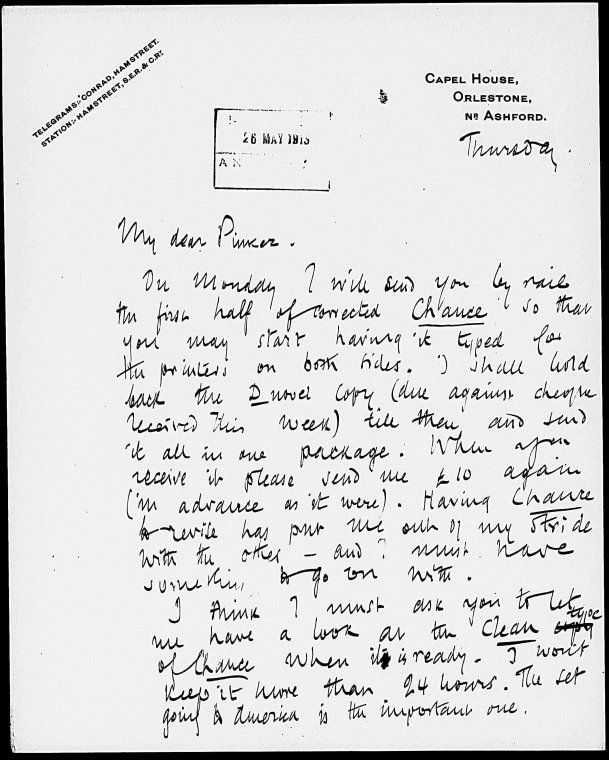 TELEGRAMS:- CONRAD, HAMSTREET.
STATION:- HAMSTREET, S.E.R. & C.RY.
CAPEL HOUSE,
ORLESTONE,
NR ASHFORD.
26 MAY 1913
Thursday.
My dear Pinker.
On Monday I will send you by rail
the first half of corrected Chance so that
you may start having it typed for
the printers on both sides. I shall hold
back the D novel copy (due against cheque
received this week) till then and send
it all in one package. When you
receive it please send me £10 again
(in advance as it were). Having Chance
to revise has put me out of my stride
with the other – and I must have
something to go on with.
I think I must ask you to let
me have a look at the Clean type
of Chance when it is ready. I won't
keep it more than 24 hours. The set
going to America is the important one.